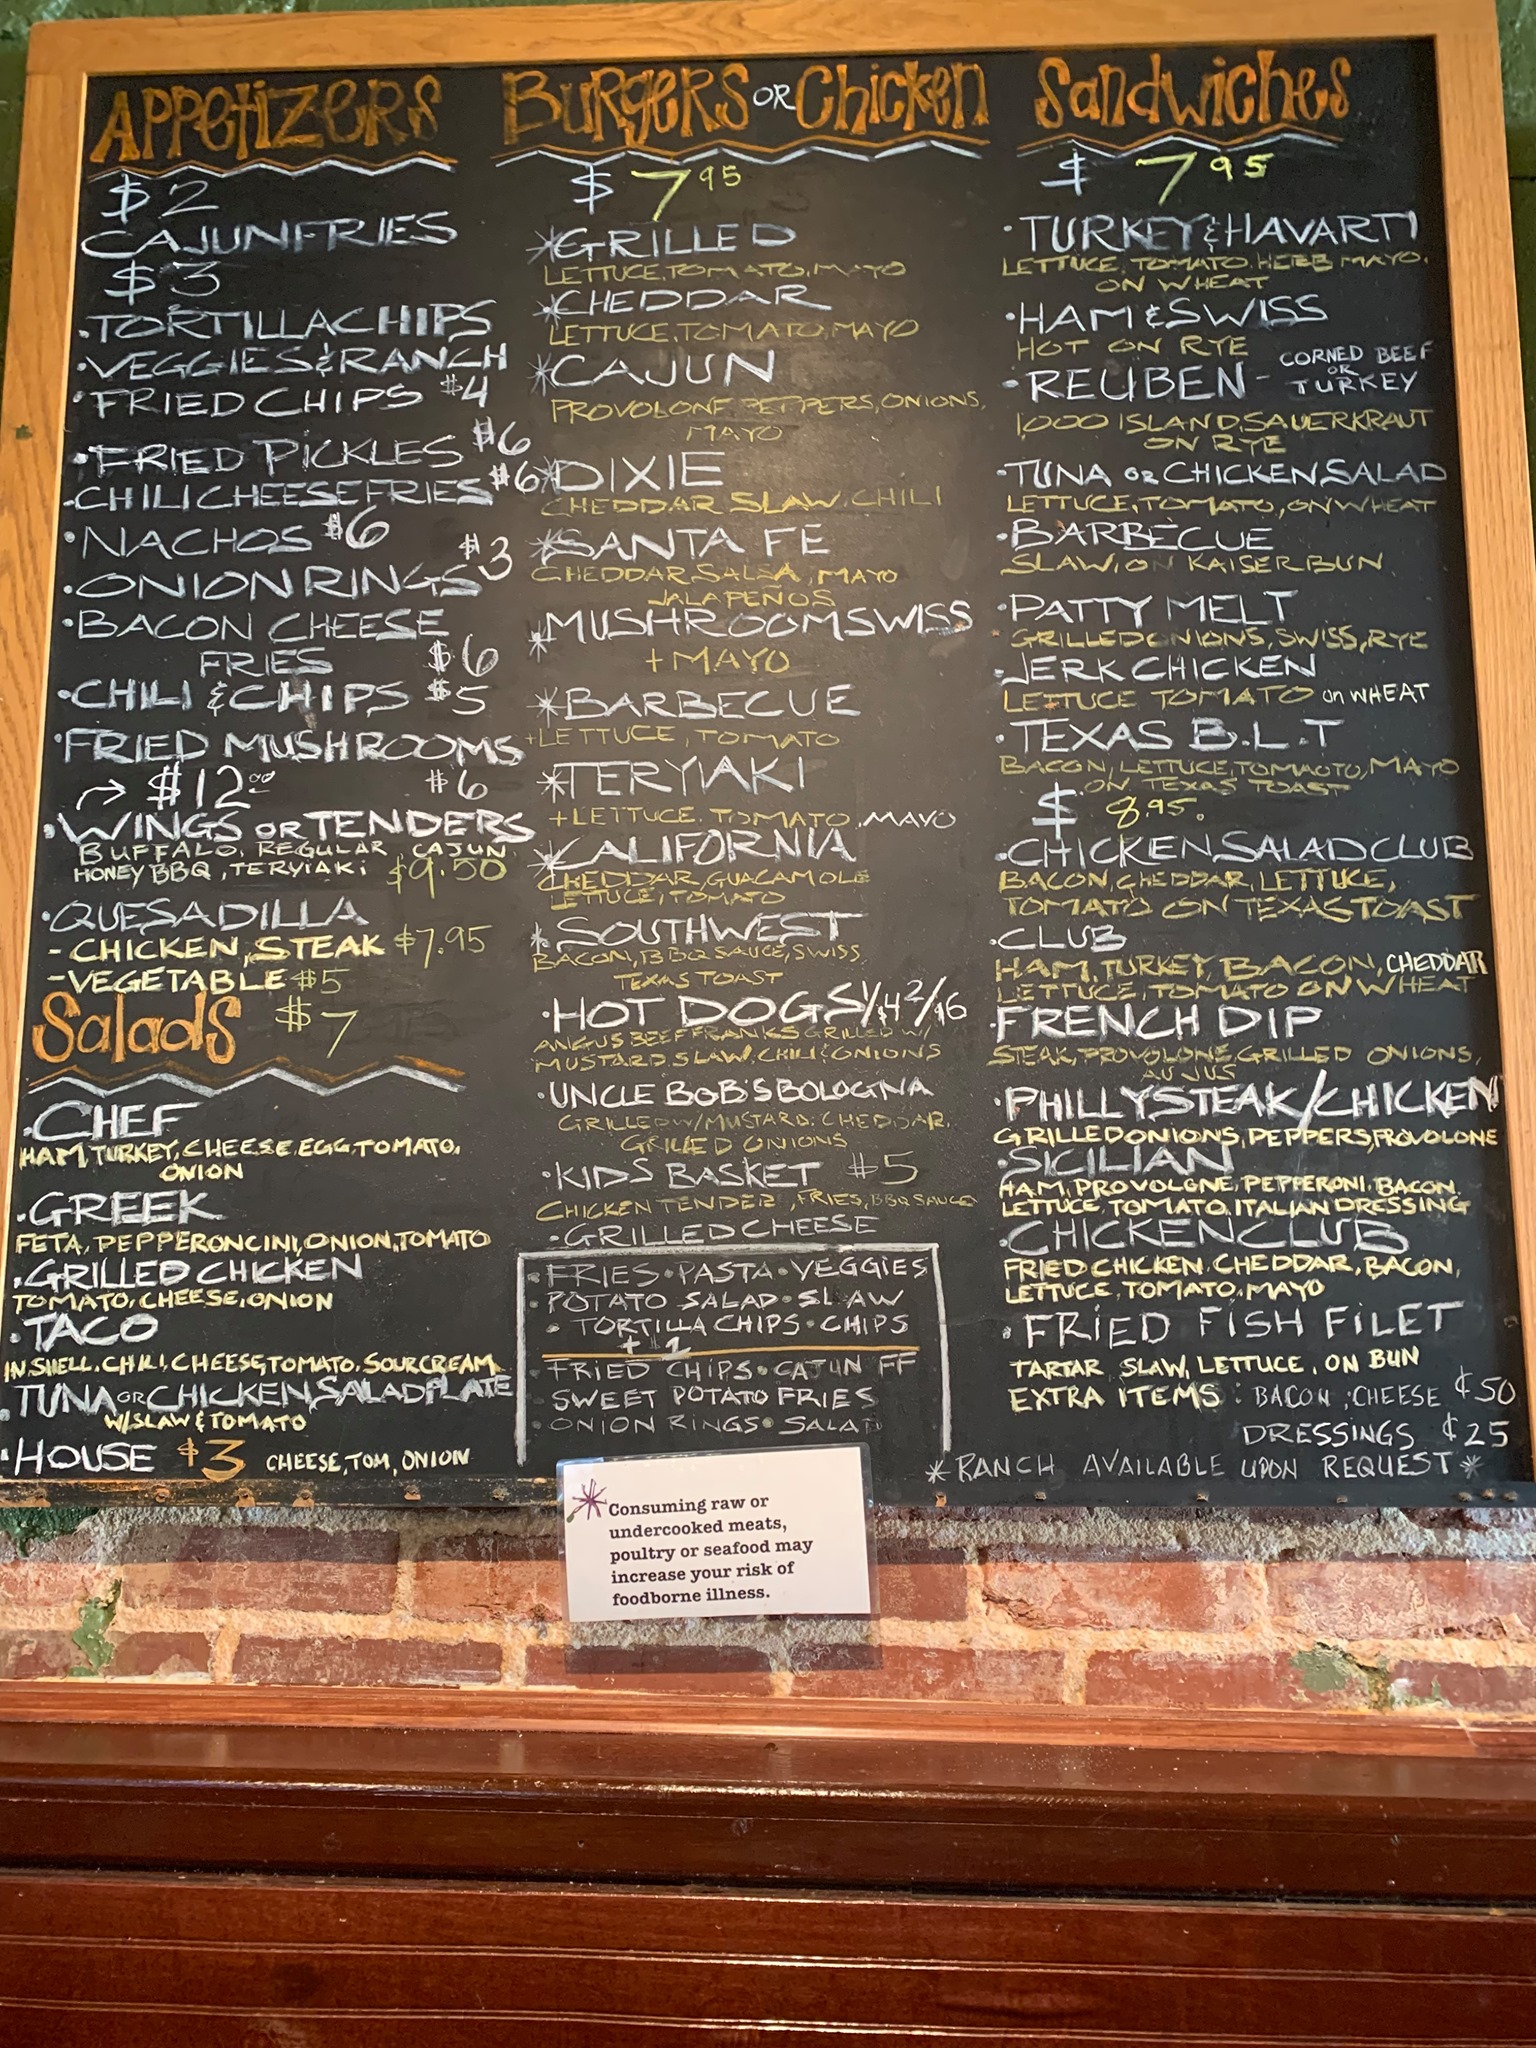 APPETIZERS
$2
CAJUN FRIES
$3
·TORTILLA CHIPS
·VEGGIES & RANCH
·FRIED CHIPS $4
·FRIED PICKLES $6
·CHILI CHEESE FRIES $6
·NACHOS $6
·ONION RINGS $3
·BACON CHEESE
FRIES $6
·CHILI & CHIPS $5
·FRIED MUSHROOMS
$6
→ $12.00
·WINGS OR TENDERS
BUFFALO, REGULAR, CAJUN
HONEY BBQ, TERYIAKI $9.50
·QUESADILLA
- CHICKEN, STEAK $7.95
- VEGETABLE $5
Salads $7
·CHEF
HAM, TURKEY, CHEESE, EGG, TOMATO,
ONION
·GREEK
FETA, PEPPERONCINI, ONION, TOMATO
·GRILLED CHICKEN
TOMATO, CHEESE, ONION
·TACO
IN SHELL, CHILI, CHEESE, TOMATO, SOUR CREAM
·TUNA OR CHICKEN SALAD PLATE
W/SLAW & TOMATO
·HOUSE $3 CHEESE, TOM, ONION
Burgers OR Chicken
$7.95
*GRILLED
LETTUCE, TOMATO, MAYO
*CHEDDAR
LETTUCE, TOMATO, MAYO
*CAJUN
PROVOLONE PEPPERS, ONIONS,
MAYO
*DIXIE
CHEDDAR SLAW, CHILI
*SANTA FE
CHEDDAR SALSA, MAYO
JALAPEÑOS
*MUSHROOM SWISS
+ MAYO
*BARBECUE
+LETTUCE, TOMATO
*TERYIAKI
+LETTUCE, TOMATO, MAYO
*CALIFORNIA
CHEDDAR, GUACAMOLE
LETTUCE, TOMATO
*SOUTHWEST
BACON, BBQ SAUCE, SWISS
TEXAS TOAST
·HOT DOGS 1/$4 2/$6
ANGUS BEEF FRANKS GRILLED W/
MUSTARD, SLAW, CHILI & ONIONS
·UNCLE BOB'S BOLOGNA
GRILLED W/MUSTARD, CHEDDAR,
GRILLED ONIONS
·KIDS BASKET $5
CHICKEN TENDER, FRIES, BBQ SAUCE
·GRILLED CHEESE
·FRIES·PASTA·VEGGIES
·POTATO SALAD·SLAW
·TORTILLA CHIPS·CHIPS
+1
·FRIED CHIPS·CAJUN FF
·SWEET POTATO FRIES
·ONION RINGS·SALAD
Sandwiches
$7.95
·TURKEY & HAVARTI
LETTUCE, TOMATO, HERB MAYO,
ON WHEAT
·HAM & SWISS
HOT ON RYE
·REUBEN - CORNED BEEF
OR
TURKEY
1000 ISLAND, SAUERKRAUT
ON RYE
·TUNA OR CHICKEN SALAD
LETTUCE, TOMATO, ON WHEAT
·BARBECUE
SLAW, ON KAISER BUN
·PATTY MELT
GRILLED ONIONS, SWISS, RYE
·JERK CHICKEN
LETTUCE TOMATO on WHEAT
·TEXAS B.L.T
BACON, LETTUCE, TOMAOTO, MAYO
ON TEXAS TOAST
$8.95.
·CHICKEN SALAD CLUB
BACON, CHEDDAR, LETTUCE,
TOMATO ON TEXAS TOAST
·CLUB
HAM, TURKEY, BACON, CHEDDAR
LETTUCE, TOMATO ON WHEAT
·FRENCH DIP
STEAK, PROVOLONE, GRILLED ONIONS,
AU JUS
·PHILLY STEAK/CHICKEN
GRILLED ONIONS, PEPPERS, PROVOLONE
·SICILIAN
HAM, PROVOLONE, PEPPERONI, BACON
LETTUCE, TOMATO, ITALIAN DRESSING
·CHICKEN CLUB
FRIED CHICKEN, CHEDDAR, BACON,
LETTUCE, TOMATO, MAYO
·FRIED FISH FILET
TARTAR, SLAW, LETTUCE, ON BUN
EXTRA ITEMS: BACON, CHEESE ¢50
DRESSINGS ¢25
*RANCH AVAILABLE UPON REQUEST*
* Consuming raw or
undercooked meats,
poultry or seafood may
increase your risk of
foodborne illness.